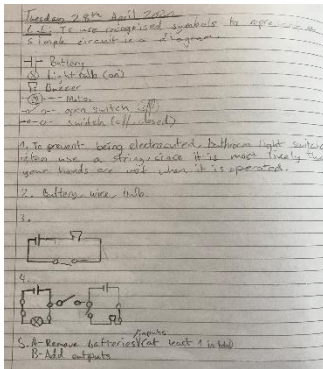 Tuesday 28th April
L.I. To use recognised symbols to represent a
simple circuit in a diagram.
Battery
Light bulb (on)
Buzzer
Motor
open switch (off)
switch (off/closed)
1. To prevent being electrocuted, bathroom light switches
often use a string, since it is most likely that
your hands are wet when it is operated.
2. Battery, wire, bulb.
3.
4.
5. A- Remove batteries/inputs (at least 1 in total)
B- Add outputs